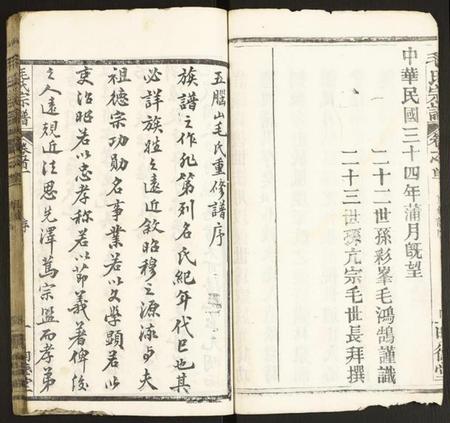 毛氏宗譜
中華民國三十四年蒲月既望
二十二世孫彩峯毛鴻鵠謹識
二十三世孫亢宗毛世長拜撰
五腦山毛氏重修譜序
族譜之作孔第列名氏紀年代已也其
必詳族姓之遠近敘昭穆之源流與夫
祖德宗功勛名事業若以文學顯若以
吏治昭若以忠孝稱若以節義著俾後
之人遠規近法思先澤篤宗盟而孝弟
毛氏宗譜
卷首
序